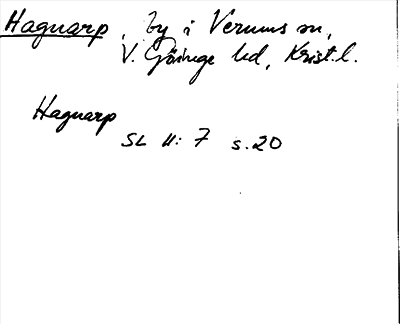 Hagnarp, by i Verums sn,
V. Göinge hd, Krist.l.
Hagnarp
SL II: 7 s. 20